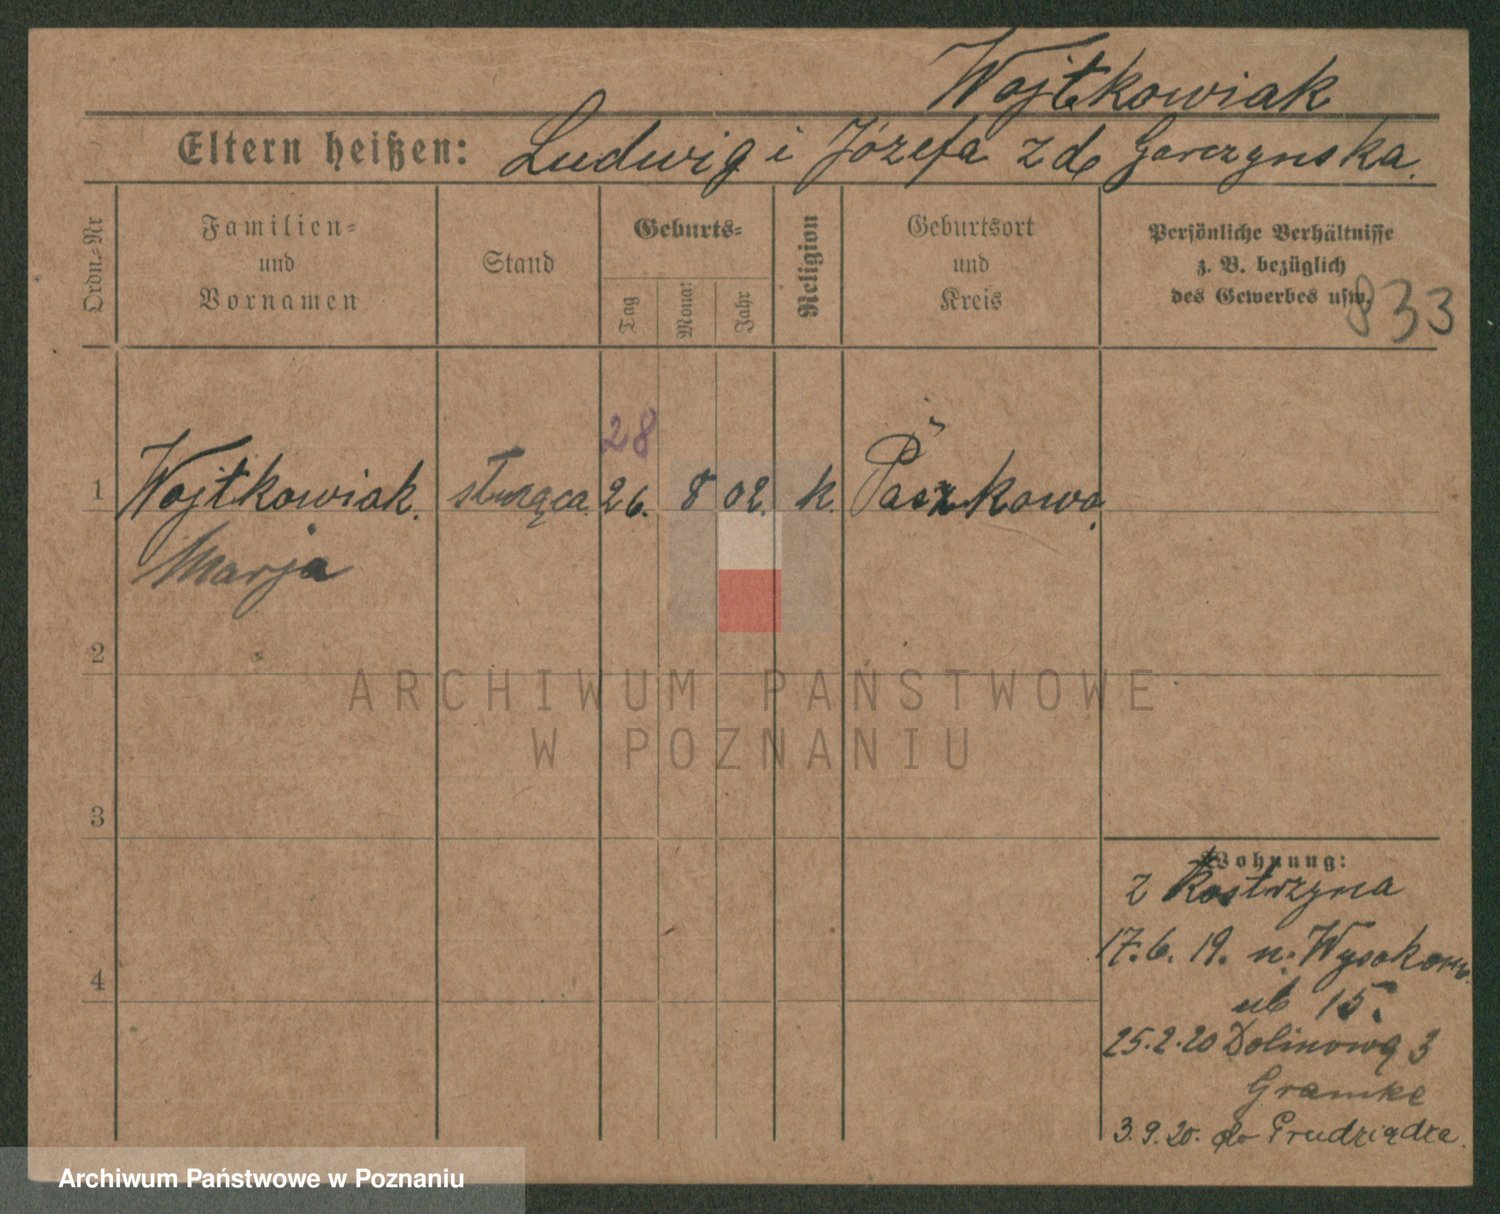 Wojtkowiak
Eltern heißen: Ludwig i Józefa z d. Garczynska.
Ordn.-Nr
Familien-
und
Vornamen
Stand
Geburts-
Tag
Monat
Jahr
Religion
Geburtsort
und
Kreis
Persönliche Verhältnisse
z. B. bezüglich
des Gewerbes usw.
833
28
1 Wojtkowiak. służąca. 26. 8 02. k. Paszkowo.
Marja
2
ARCHIWUM PAŃSTWOWE
W POZNANIU
3
4
Wohnung:
z Kostrzyna
17.6.19. n. Wysoka
15.
25.2.20 Dolinowa 3
Gramke
3.9.20. do Grudziądza.
Archiwum Państwowe w Poznaniu